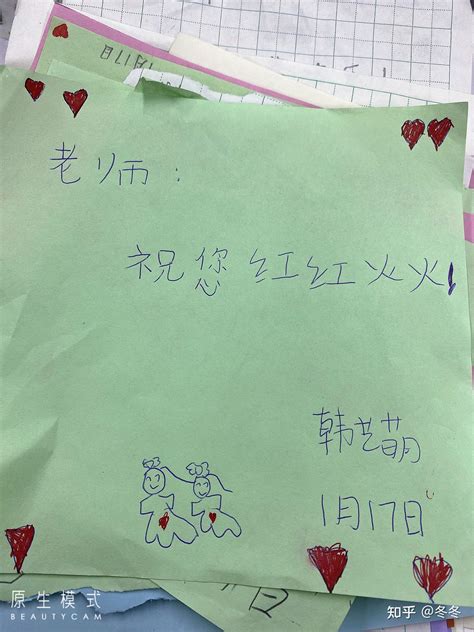 老师：
祝您红红火火!
韩艺萌
1月17日
原生模式
BEAUTYCAM
知乎 @冬冬